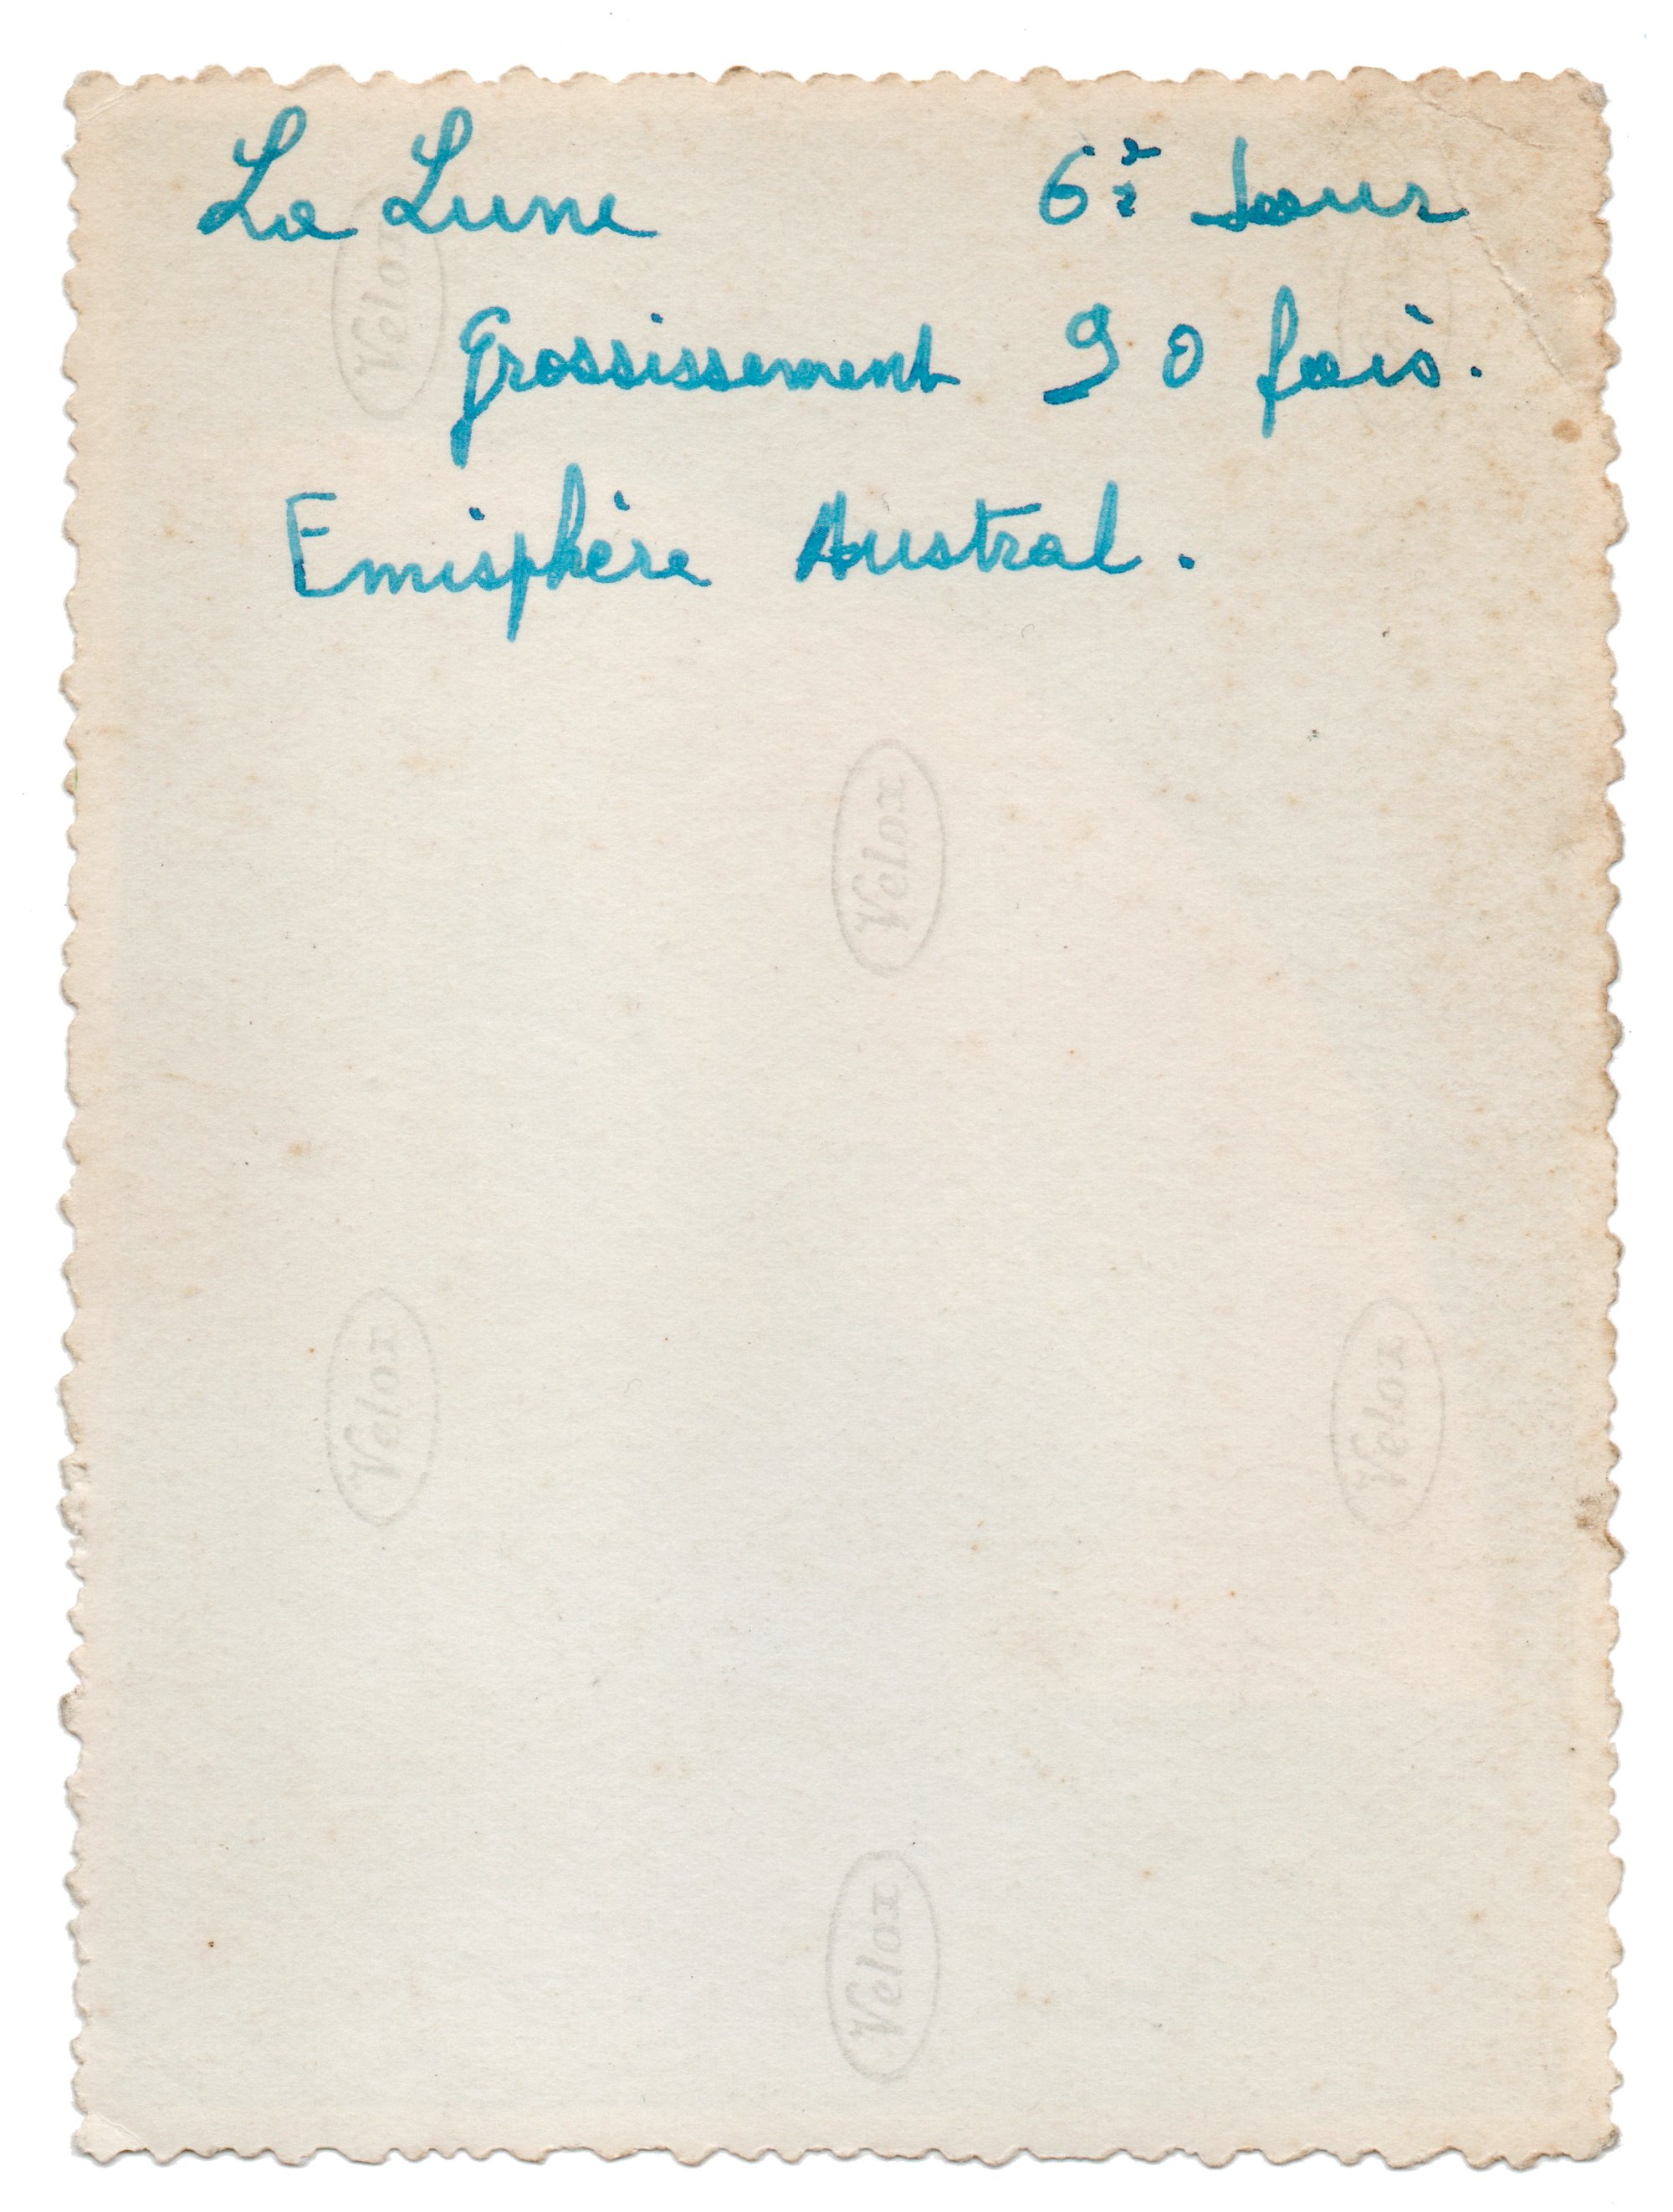 La Lune 6è Jour
Grossissement 90 fois.
Emisphère Austral.
Velox
Velox
Velox
Velox
Velox